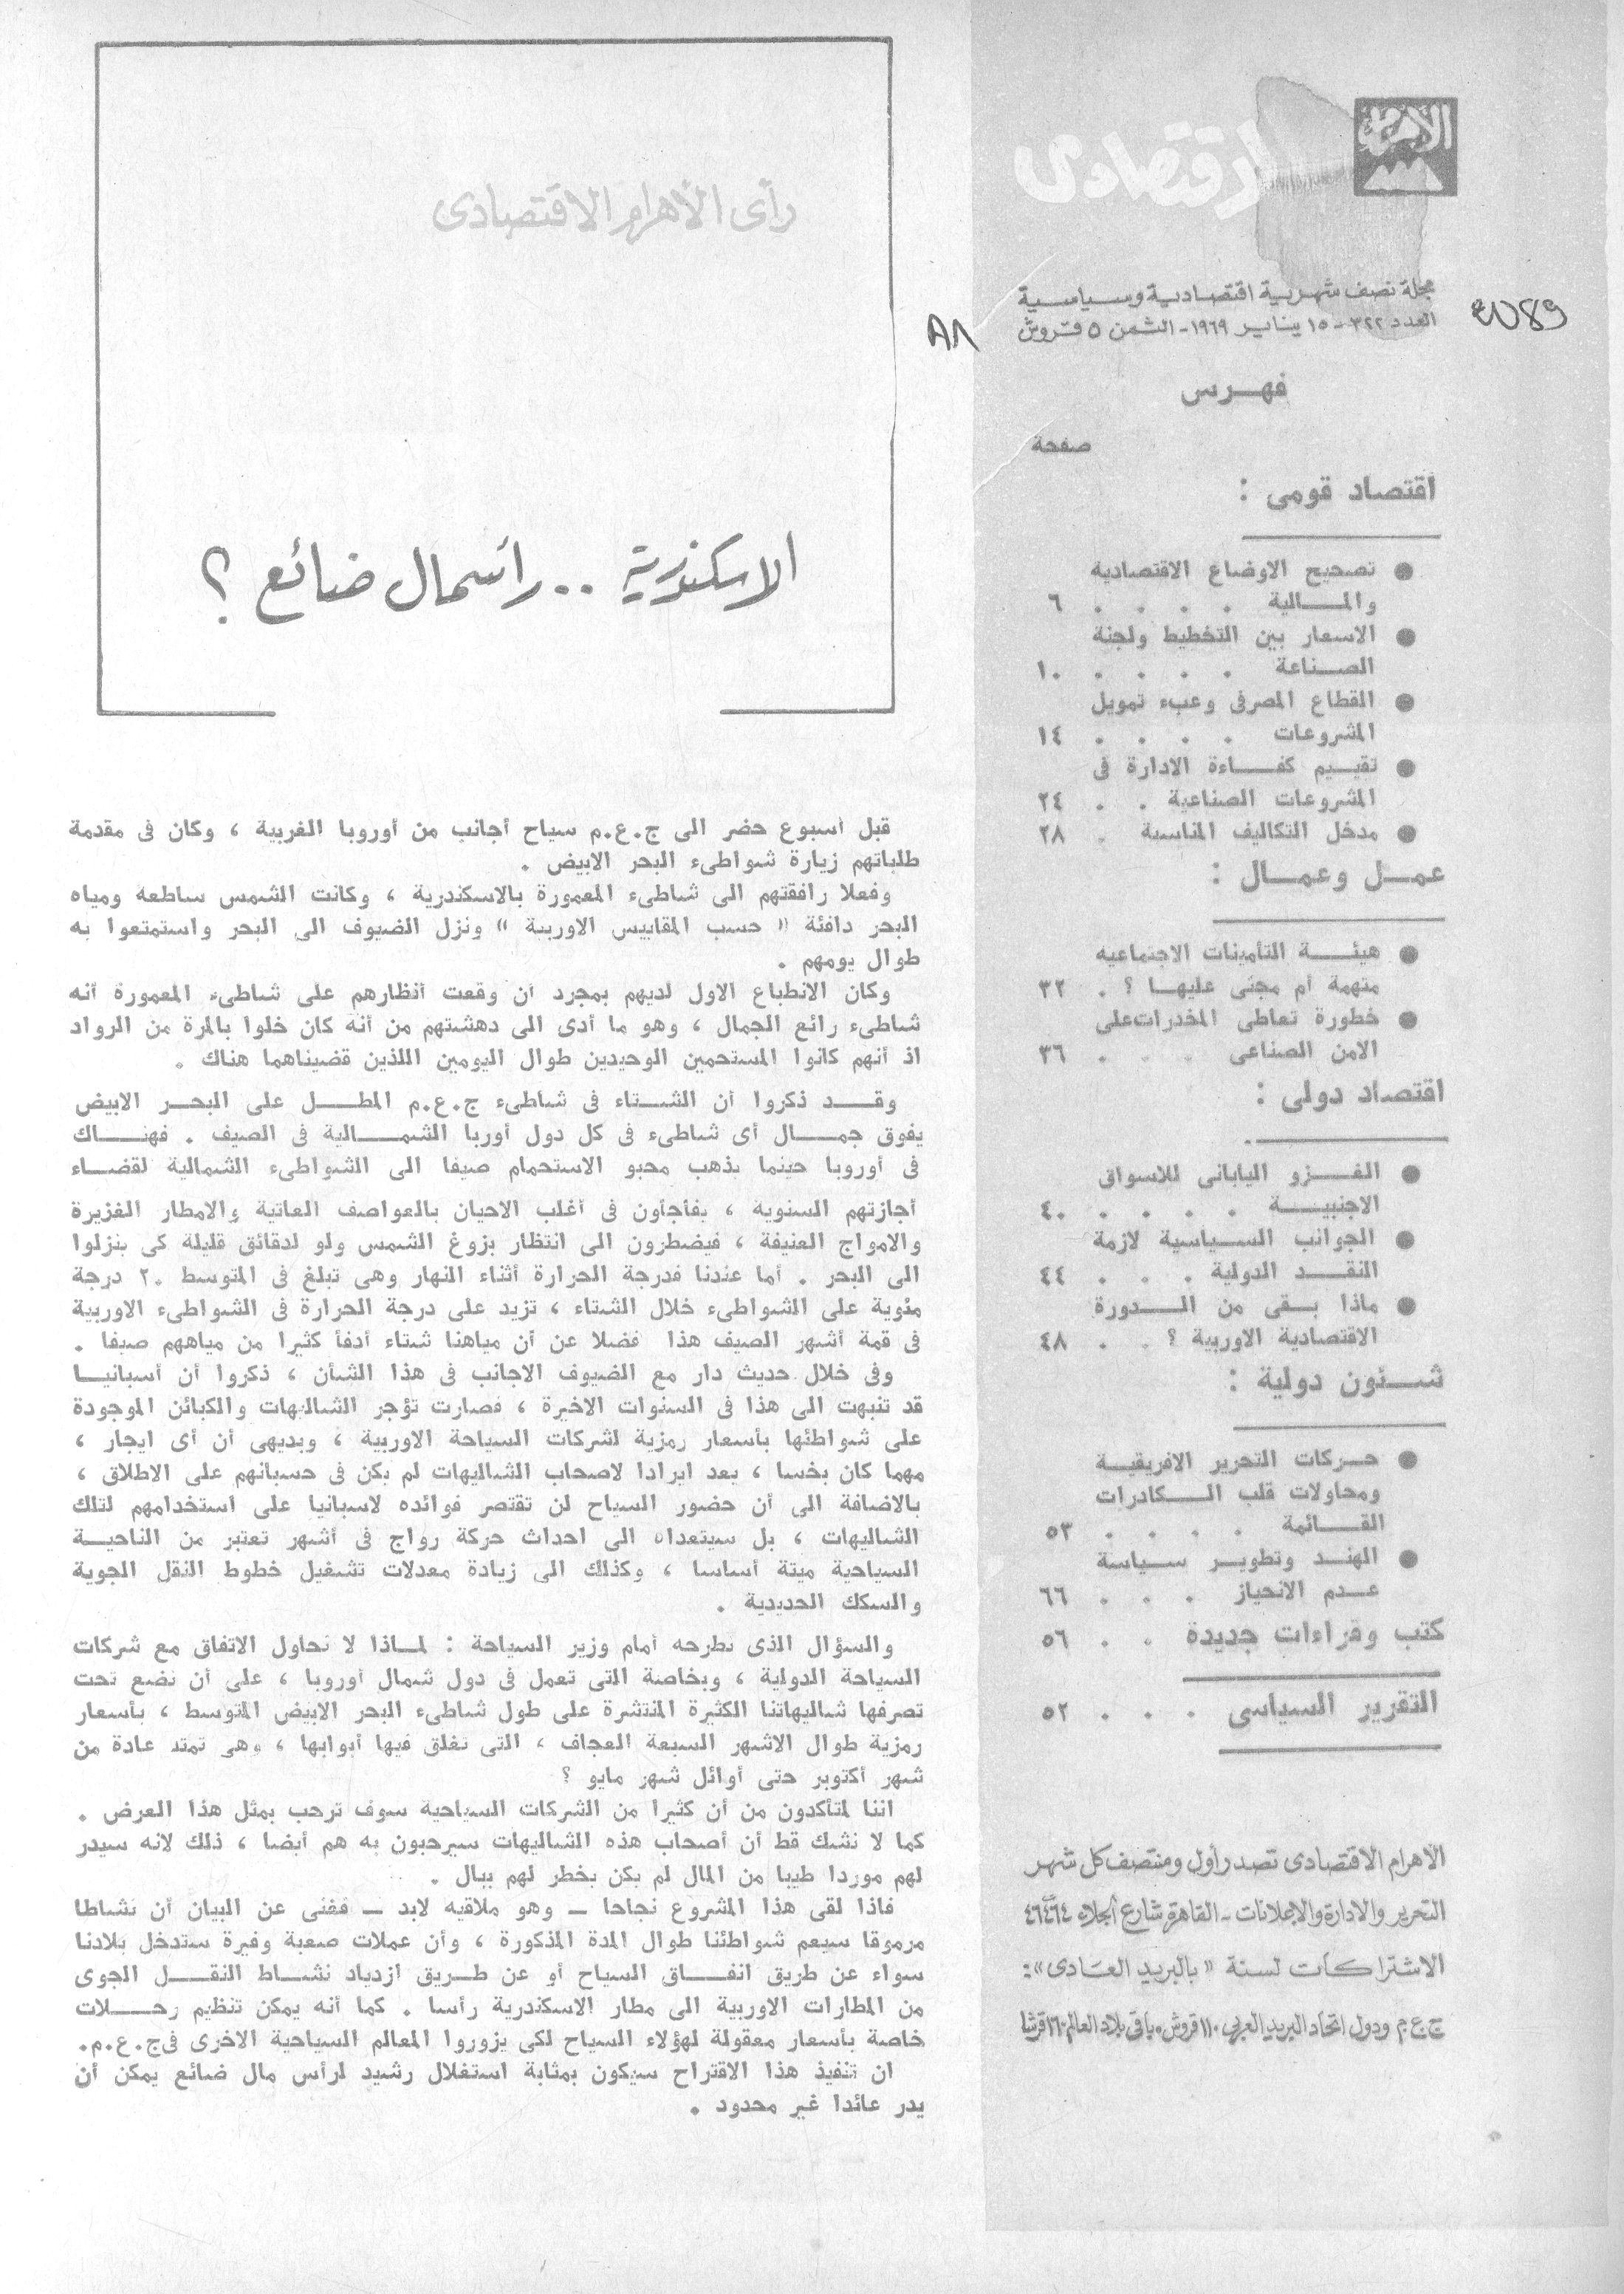 الأهرام
الاقتصادى
مجلة نصف شهرية اقتصادية وسياسية
العدد ٣٢٢ - ١٥ يناير ١٩٦٩ - الثمن ٥ قروش
فهرس
صفحة
اقتصاد قومى :
● تصحيح الاوضاع الاقتصادية
والمالية . . . . ٦
● الاسعار بين التخطيط ولجنة
الصناعة . . . . . ١٠
● القطاع المصرفى وعبء تمويل
المشروعات . . . . ١٤
● تقييم كفاءة الادارة فى
المشروعات الصناعية . . ٢٤
● مدخل التكاليف المناسبة . ٢٨
عمل وعمال :
● هيئة التأمينات الاجتماعيه
متهمة أم مجنى عليها ؟ . ٣٢
● خطورة تعاطى المخدرات على
الامن الصناعى . . . ٣٦
اقتصاد دولى :
● الغزو اليابانى للاسواق
الاجنبية . . . . . ٤٠
● الجوانب السياسية لازمة
النقد الدولية . . . ٤٤
● ماذا بقى من الدورة
الاقتصادية الاوربية ؟ . . ٤٨
شئون دولية :
● حركات التحرير الافريقية
ومحاولات قلب الكادرات
القائمة . . . . ٥٣
● الهند وتطوير سياسة
عدم الانحياز . . . ٦٦
كتب وقراءات جديدة . . ٥٦
التقرير السياسى . . . ٥٢
الأهرام الاقتصادى تصدر أول ومنتصف كل شهر
التحرير والادارة والإعلانات - القاهرة شارع الجلاء ٤٦٤٦٤
الاشتراكات لسنة « بالبريد العادى » :
ج ع م ودول اتحاد البريد العربى ١١٠ قروش ، باقى بلاد العالم ١٦٠ قرشا
رأى الأهرام الاقتصادى
الاسكندرية .. رأسمال ضائع ؟
قبل أسبوع حضر الى ج.ع.م سياح أجانب من أوروبا الغربية ، وكان فى مقدمة
طلباتهم زيارة شواطىء البحر الابيض .
وفعلا رافقتهم الى شاطىء المعمورة بالاسكندرية ، وكانت الشمس ساطعه ومياه
البحر دافئة « حسب المقاييس الاوربية » ونزل الضيوف الى البحر واستمتعوا به
طوال يومهم .
وكان الانطباع الاول لديهم بمجرد أن وقعت أنظارهم على شاطىء المعمورة أنه
شاطىء رائع الجمال ، وهو ما أدى الى دهشتهم من أنه كان خلوا بالمرة من الرواد
اذ أنهم كانوا المستحمين الوحيدين طوال اليومين اللذين قضيناهما هناك .
وقد ذكروا أن الشتاء فى شاطىء ج.ع.م المطل على البحر الابيض
يفوق جمال أى شاطىء فى كل دول أوربا الشمالية فى الصيف . فهناك
فى أوروبا حينما يذهب محبو الاستحمام صيفا الى الشواطىء الشمالية لقضاء
أجازتهم السنوية ، يفاجأون فى أغلب الاحيان بالعواصف العاتية والامطار الغزيرة
والامواج العنيفة ، فيضطرون الى انتظار بزوغ الشمس ولو لدقائق قليلة كى ينزلوا
الى البحر . أما عندنا فدرجة الحرارة أثناء النهار وهى تبلغ فى المتوسط ٢٠ درجة
مئوية على الشواطىء خلال الشتاء ، تزيد على درجة الحرارة فى الشواطىء الاوربية
فى قمة أشهر الصيف هذا فضلا عن أن مياهنا شتاء أدفأ كثيرا من مياههم صيفا .
وفى خلال حديث دار مع الضيوف الاجانب فى هذا الشأن ، ذكروا أن أسبانيا
قد تنبهت الى هذا فى السنوات الاخيرة ، فصارت تؤجر الشاليهات والكبائن الموجودة
على شواطئها بأسعار رمزية لشركات السياحة الاوربية ، وبديهى أن أى ايجار ،
مهما كان بخسا ، يعد ايرادا لاصحاب الشاليهات لم يكن فى حسبانهم على الاطلاق ،
بالاضافة الى أن حضور السياح لن تقتصر فوائده لاسبانيا على استخدامهم لتلك
الشاليهات ، بل سيتعداه الى احداث حركة رواج فى أشهر تعتبر من الناحية
السياحية ميتة أساسا ، وكذلك الى زيادة معدلات تشغيل خطوط النقل الجوية
والسكك الحديدية .
والسؤال الذى نطرحه أمام وزير السياحة : لماذا لا نحاول الاتفاق مع شركات
السياحة الدولية ، وبخاصة التى تعمل فى دول شمال أوروبا ، على أن نضع تحت
تصرفها شاليهاتنا الكثيرة المنتشرة على طول شاطىء البحر الابيض المتوسط ، بأسعار
رمزية طوال الاشهر السبعة العجاف ، التى تغلق فيها أبوابها ، وهى تمتد عادة من
شهر أكتوبر حتى أوائل شهر مايو ؟
اننا لمتأكدون من أن كثيرا من الشركات السياحية سوف ترحب بمثل هذا العرض .
كما لا نشك قط أن أصحاب هذه الشاليهات سيرحبون به هم أيضا ، ذلك لانه سيدر
لهم موردا طيبا من المال لم يكن يخطر لهم ببال .
فاذا لقى هذا المشروع نجاحا ــ وهو ملاقيه لابد ــ فغنى عن البيان أن نشاطا
مرموقا سيعم شواطئنا طوال المدة المذكورة ، وأن عملات صعبة وفيرة ستدخل بلادنا
سواء عن طريق انفاق السياح أو عن طريق ازدياد نشاط النقل الجوى
من المطارات الاوربية الى مطار الاسكندرية رأسا . كما أنه يمكن تنظيم رحلات
خاصة بأسعار معقولة لهؤلاء السياح لكى يزوروا المعالم السياحية الاخرى فى ج.ع.م.
ان تنفيذ هذا الاقتراح سيكون بمثابة استغلال رشيد لرأس مال ضائع يمكن أن
يدر عائدا غير محدود .